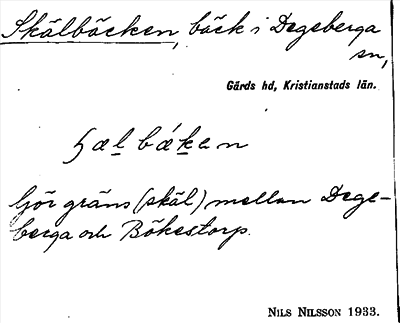 Skälbäcken, bäck i Degeberga
sn,
Gärds hd, Kristianstads län.
ɧæl bákan
Gör gräns (skäl) mellan Dege-
berga och Bökestorp.
NILS NILSSON 1933.